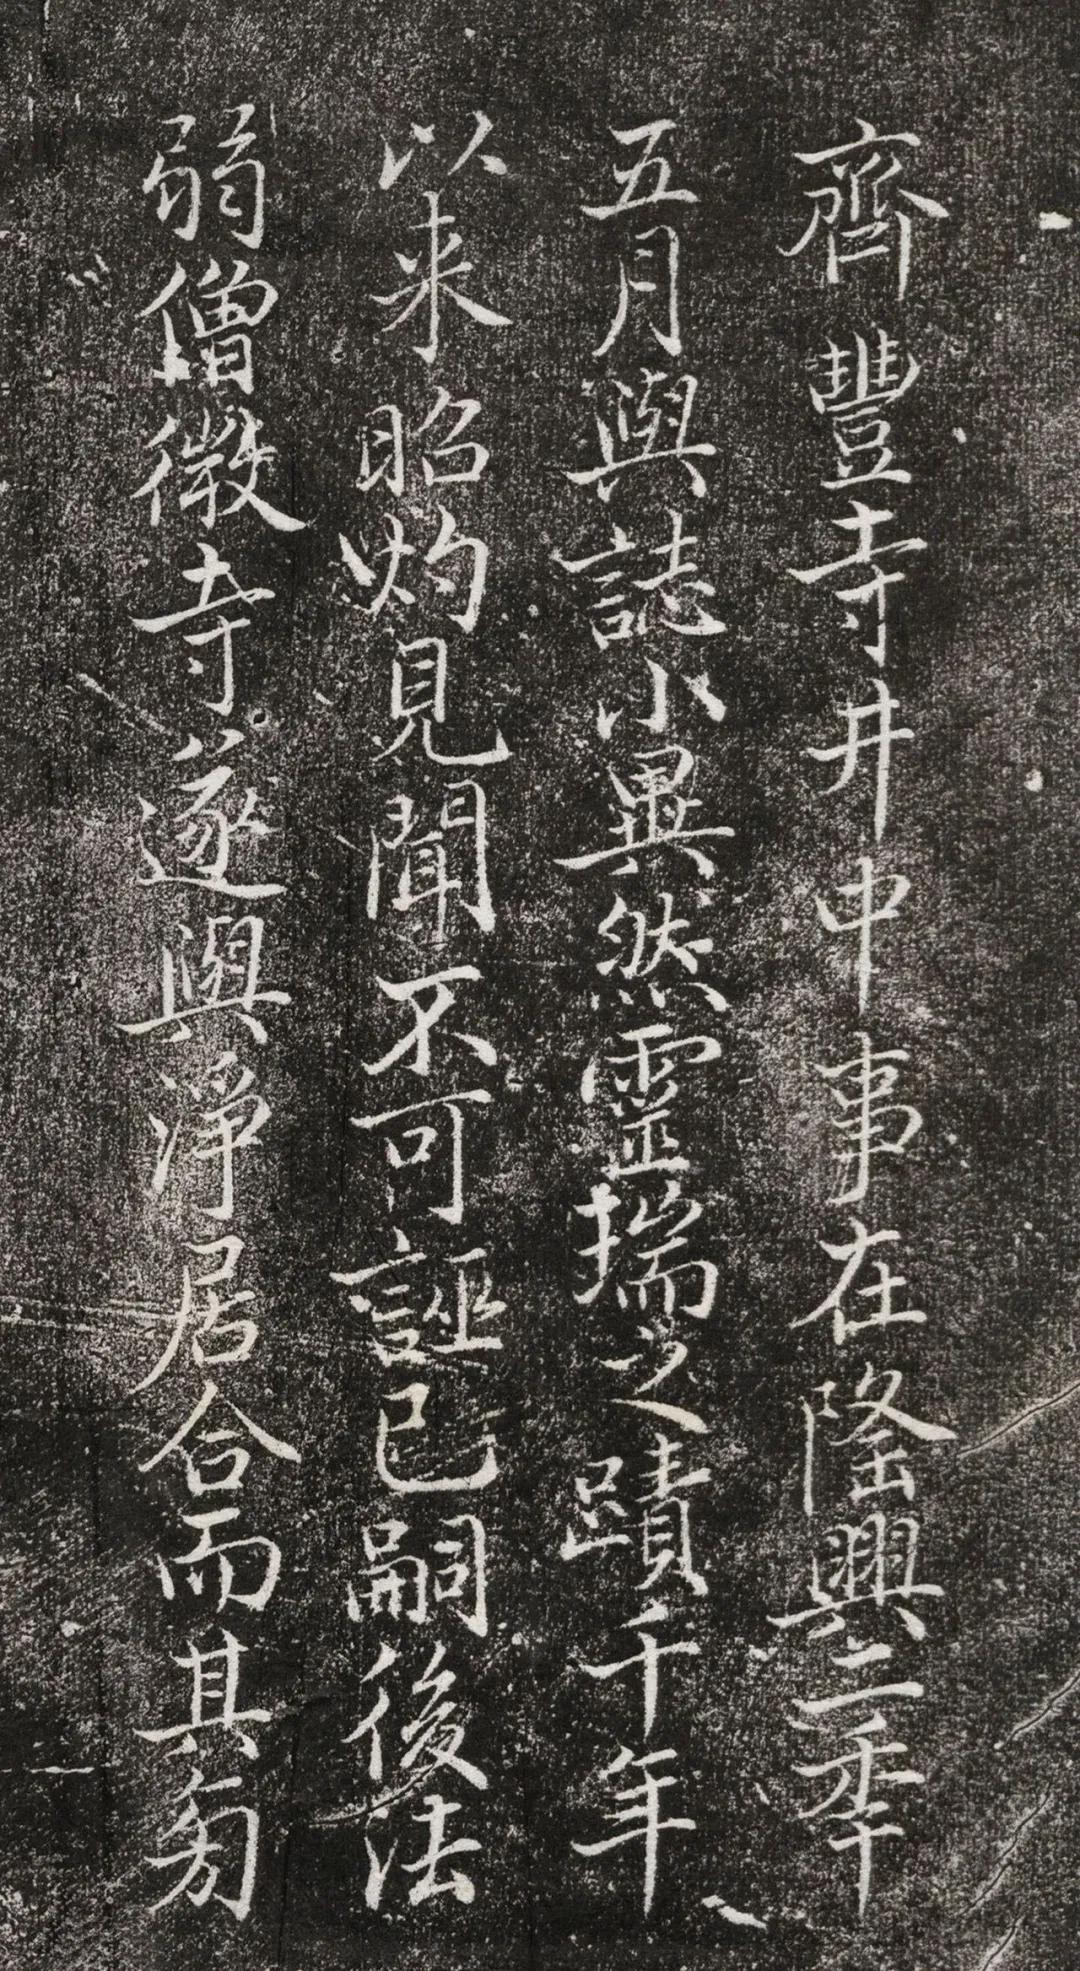 齊豐寺井中事在隆興二季
五月與誌小異然靈瑞之蹟千年
以来昭灼見聞不可誣已嗣後法
弱僧微寺遂與淨居合而其匃